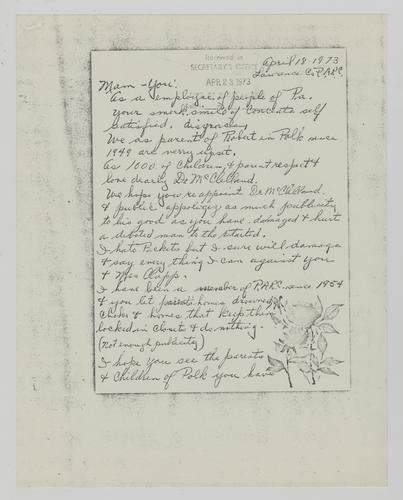 April 18 1973
Received in
SECRETARY'S OFFICE
Lawrance Co P.A.R.C.
APR 23 1973
Mam - You:
As a employee of people of Pa.
your smerk smile of conceate self
satisfied, disgraces
We as parent of Robert in Polk since
1949 are verry upset.
As 1000 of children & parent respect &
love dearly Dr McClelland.
We hope you reappoint Dr McClelland.
& public appoligez as much publicity
to his good as you have damaged & hurt
a devoted man to the retarted.
I hate Pickets but I sure will damage
& say every thing I can against you
& Miss Clapp.
I have been a member of P.A.R.C. since 1954
& you let private homes drowned
choke & homes that keep them
locked in closets & do nothing.
(not enough publicity)
I hope you see the parents
& children of Polk you have